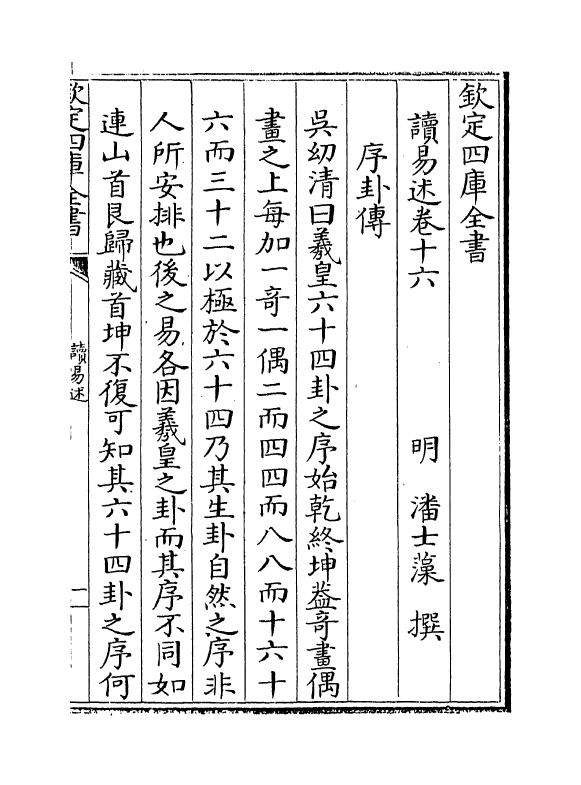 欽定四庫全書
讀易述卷十六
明 潘士藻 撰
序卦傳
吳幼清曰羲皇六十四卦之序始乾終坤葢奇畫偶
畫之上每加一奇一偶二而四四而八八而十六十
六而三十二以極於六十四乃其生卦自然之序非
人所安排也後之易各因羲皇之卦而其序不同如
連山首艮歸藏首坤不復可知其六十四卦之序何
欽定四庫全書
讀易述
一